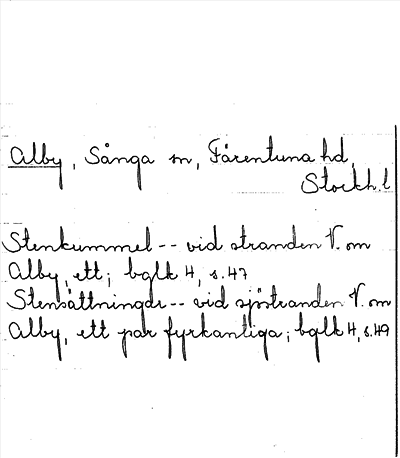 Alby, Sånga sn, Färentuna hd,
Stockh. l
Stenkummel -- vid stranden V. om
Alby, ett; bglk 4, s. 47
Stensättningar -- vid sjöstranden V. om
Alby, ett par fyrkantiga; bglk 4, s. 49